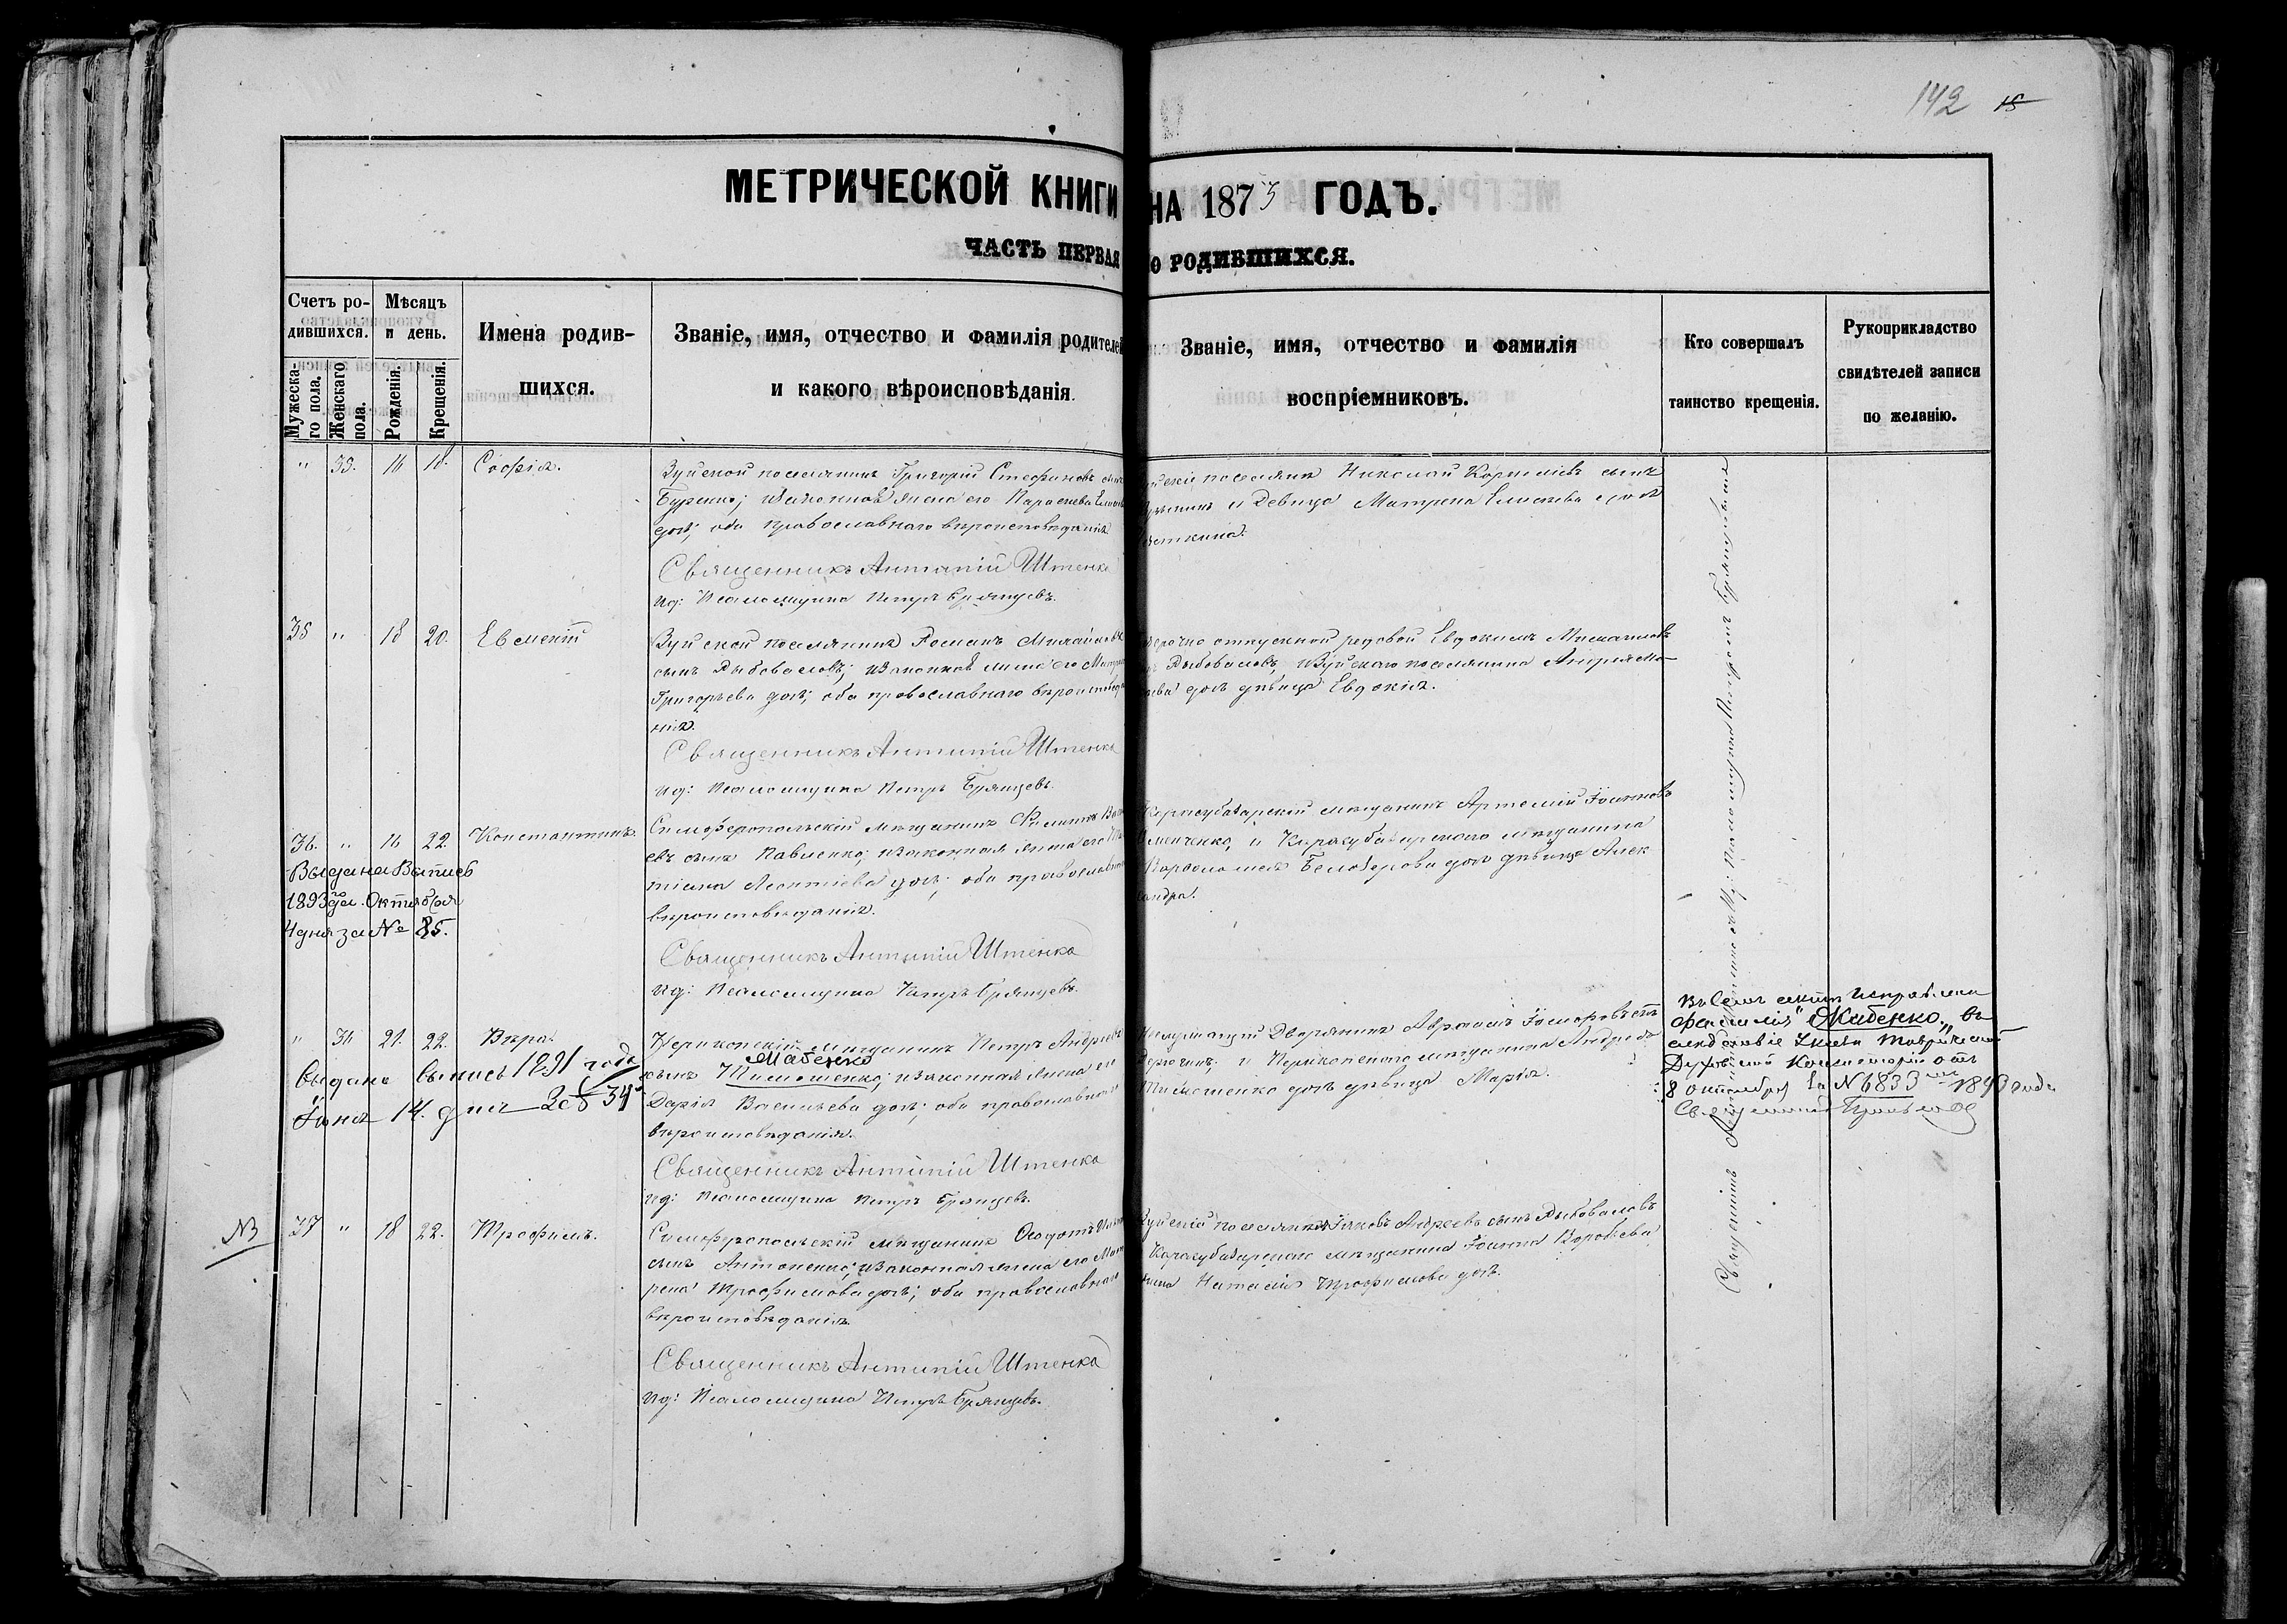 142 15
МЕТРИЧЕСКОЙ КНИГИ НА 1875 ГОДЪ.
ЧАСТЬ ПЕРВАЯ О РОДИВШИХСЯ.
Счетъ ро-
дившихся.
Мужеска-
го пола.
Женскаго
пола.
Мѣсяцъ
и день.
Рожденія.
Крещенія.
Имена родив-
шихся.
Званіе, имя, отчество и фамилія родителей
и какого вѣроисповѣданія.
Званіе, имя, отчество и фамилія
воспріемниковъ.
Кто совершалъ
таинство крещенія.
Рукоприкладство
свидѣтелей записи
по желанію.
" 35. 16 18. Софія.
Зуйской поселянинъ Григорій Стефановъ сынъ
Буренко; и законная жена его Параскева
дочь; оба православнаго вѣроисповѣданія
Священникъ Антипій Штенко
ид: Псаломщика Петръ Брянцевъ.
поселянинъ Николай Корнилievъ сынъ
и Девица Матрена дочь
35 " 18 20. Евменій
Зуйской поселянинъ Романъ Михайловъ
сынъ Рыбоваловъ; и законная жена его
Григорьева дочь; оба православнаго вѣроисповѣда
нія.
Священникъ Антипій Штенко
ид: Псаломщика Петръ Брянцевъ.
отпускной рядовой Евдокимъ
Рыбоваловъ, и Зуйскаго поселянина Андрея
дочь дѣвица Евдокія.
36. " 16 22. Константинъ.
Выдана Выпись
1893 года. Октября
4 дня за № 85.
Симферопольскій мѣщанинъ Филиппъ
евъ сынъ Павленко; и законная жена его
тіана Леонтіева дочь; оба православнаго
вѣроисповѣданія.
Священникъ Антипій Штенко
ид: Псаломщика Петръ Брянцевъ.
Карасубазарскій мѣщанинъ Артемій Іоанновъ
и Карасубазарскаго мѣщанина
Варѳоломея Белозерова дочь дѣвица Алек
сандра.
" 36 21. 22. Вѣра.
Выдана выпись 1891 года
Іюня 14. дня за № 34
Перекопскій мѣщанинъ Петръ Андреевъ
Жабенко
сынъ Тимошенко; и законная жена его
Дарія Васильева дочь; оба православнаго
вѣроисповѣданія.
Священникъ Антипій Штенко
ид: Псаломщика Петръ Брянцевъ.
Дворянинъ Авраамъ
и Перекопскаго мѣщанина Андрея
Тимошенко дочь дѣвица Марія.
Въ семъ актѣ исправлена
фамилія "Жабенко" въ
слѣдствіе Указа Таврической
Духовной Консисторіи отъ
8 октября за № 6833 1893 года
Священникъ
№3
37 " 18 22. Трофимъ.
Симферопольскій мѣщанинъ Ѳеодотъ
сынъ Антоненко; и законная жена его Мат
рена Трофимова дочь; оба православнаго
вѣроисповѣданія.
Священникъ Антипій Штенко
ид: Псаломщика Петръ Брянцевъ.
Зуйскій поселянинъ Іаковъ Андреевъ сынъ Рыбоваловъ
Карасубазарскаго мѣщанина Іоанна Воробьева
жена Наталія Трофимова дочь.
Священникъ Антипій Штенко съ ид: Псаломщика Петромъ Брянцевымъ